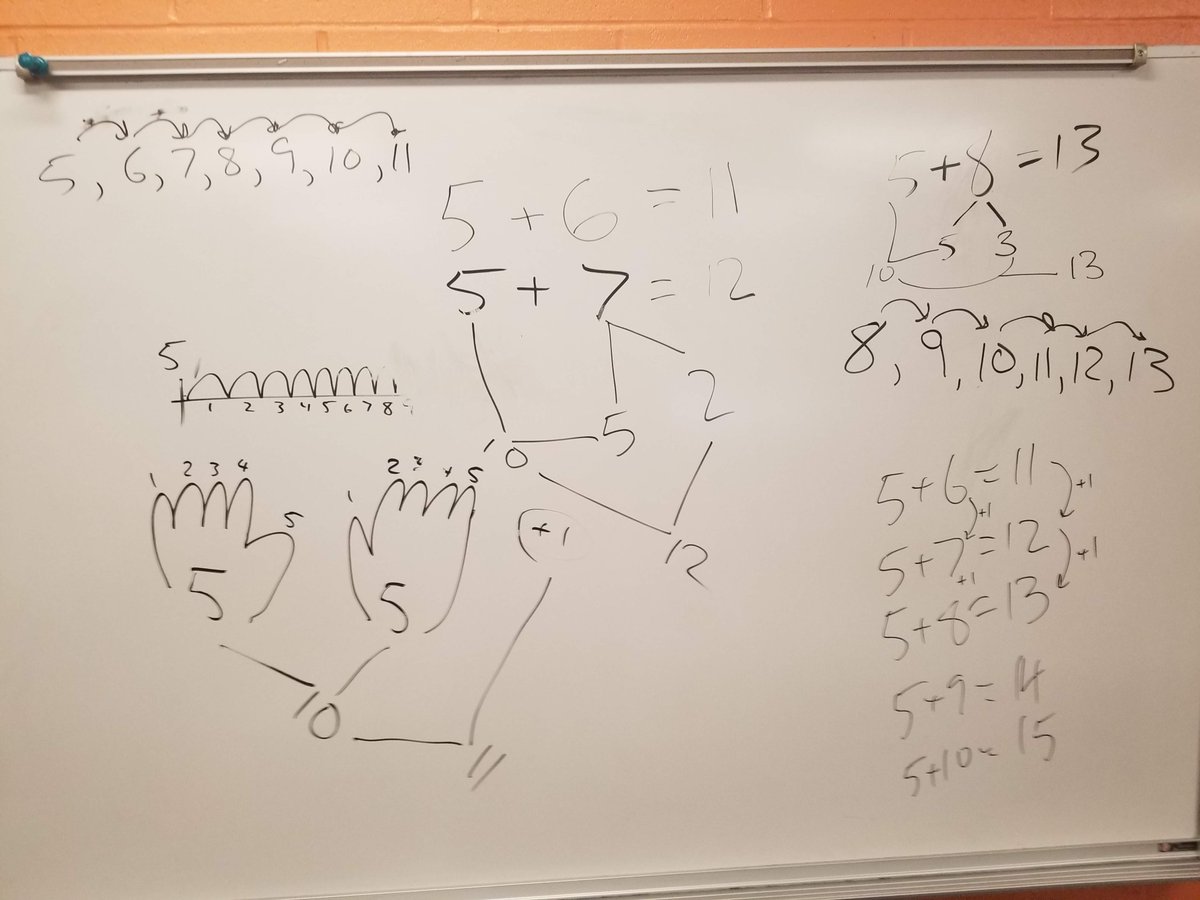 5, 6, 7, 8, 9, 10, 11
5 + 6 = 11
5 + 7 = 12
5 2
10
12
5
1 2 3 4 5 6 7 8
1 2 3 4 5
5
1 2 3 4 5
5
+1
10
11
5 + 8 = 13
5 3
10 13
8, 9, 10, 11, 12, 13
5+6=11 +1
+1
5+7=12 +1
+1
5+8=13
5+9=14
5+10= 15